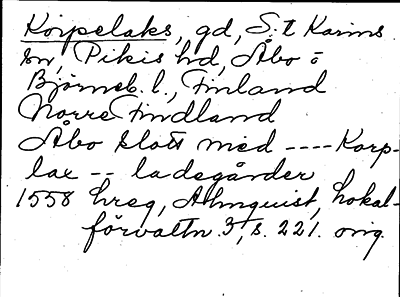 Korpelaks, gd, S:t Karins
sn, Pikis hd, Åbo o
Björneb. l., Finland
Norrefindland
Åbo slott med ---- Korp-
lax -- ladegårder
1558 hreg, Almquist, Lokal-
förvaltn. 3, s. 221. orig.